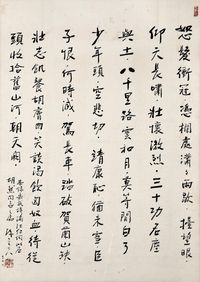 怒髮衝冠憑欄處瀟瀟雨歇擡望眼
仰天長嘯壯懷激烈三十功名塵
與土八千里路雲和月莫等閑白了
少年頭空悲切靖康恥猶未雪臣
子恨何時滅駕長車踏破賀蘭山缺
壯志飢餐胡虜肉笑談渴飲匈奴血待從
頭收拾舊山河朝天闕
滿江紅詞